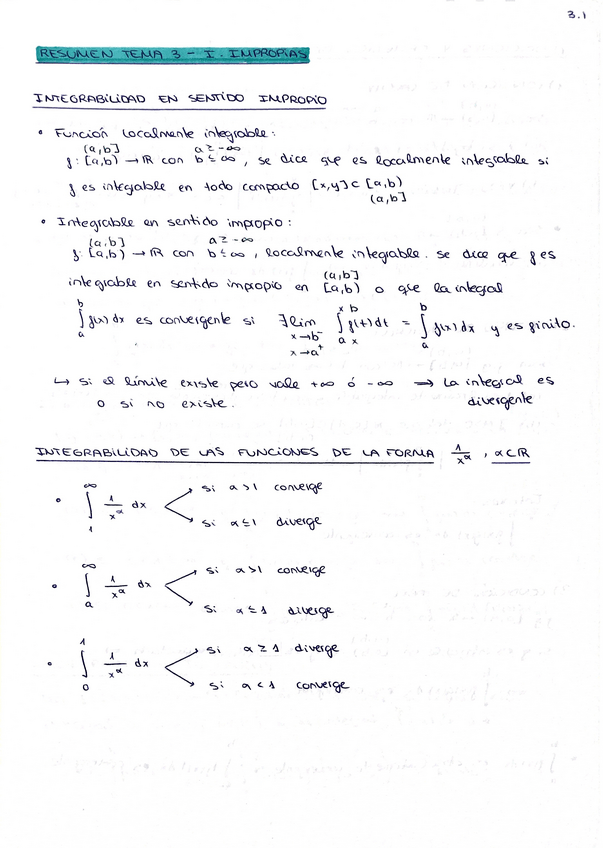 3.1
RESUMEN TEMA 3 - I. IMPROPIAS
INTEGRABILIDAD EN SENTIDO IMPROPIO
• Función localmente integrable:
(a,b] a ≥ -∞
f: [a,b) → ℝ con b ≤ ∞, se dice que es localmente integrable si
f es integable en todo compacto [x,y] ⊂ [a,b)
(a,b]
• Integrable en sentido impropio:
(a,b] a ≥ -∞
f: [a,b) → ℝ con b ≤ ∞, localmente integrable. se dice que f es
(a,b]
integrable en sentido impropio en [a,b) o que la integral
∫_a^b f(x) dx es convergente si ∃ lim ∫_a^x ∫_x^b f(t) dt = ∫_a^b f(x) dx y es finito.
x→b⁻
x→a⁺
↳ Si el límite existe pero vale +∞ ó -∞ ⟹ La integral es
o si no existe. divergente
INTEGRABILIDAD DE LAS FUNCIONES DE LA FORMA 1/x^α, α⊂ℝ
• ∫_1^∞ 1/x^α dx
si α>1 converge
si α≤1 diverge
• ∫_a^∞ 1/x^α dx
si α>1 converge
si α≤1 diverge
• ∫_0^1 1/x^α dx
si α≥1 diverge
si α<1 converge